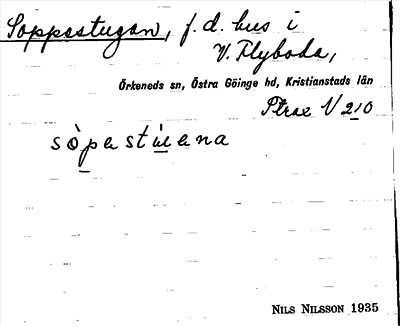 Soppestugan, f.d. hus i
V. Flyboda,
Örkeneds sn, Östra Göinge hd, Kristianstads län
V 210
sòpastùena
NILS NILSSON 1935